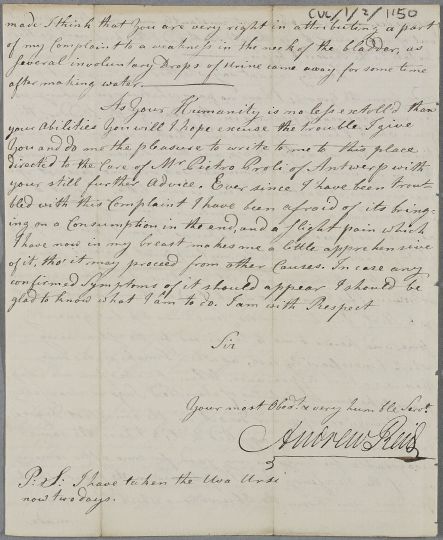 CUL/1/2/1150
made. I think that you are very right in attributing a part
of my Complaint to a weakness in the neck of the bladder, as
several involuntary Drops of Urine came away for some time
after making water.
As Your Humanity is no less extoll'd than
your Abilities You will I hope excuse the trouble I give
You and do me the pleasure to write to me to this place
directed to the Care of Mr Pietro Proli of Antwerp with
your still further Advice. Ever since I have been Trou-
bled with this Complaint I have been afraid of its bring-
ing on a Consumption in the end, and a slight pain which
I have now in my breast makes me a little apprehensive
of it, tho' it may proceed from other Causes. In case any
confirmed Symptoms of it should appear I should be
glad to know what I am to do. I am with Respect
Sir
Your most Obedt & very humble Servt
Andrew Reid
P: S: I have taken the Uva Ursi
now two days.